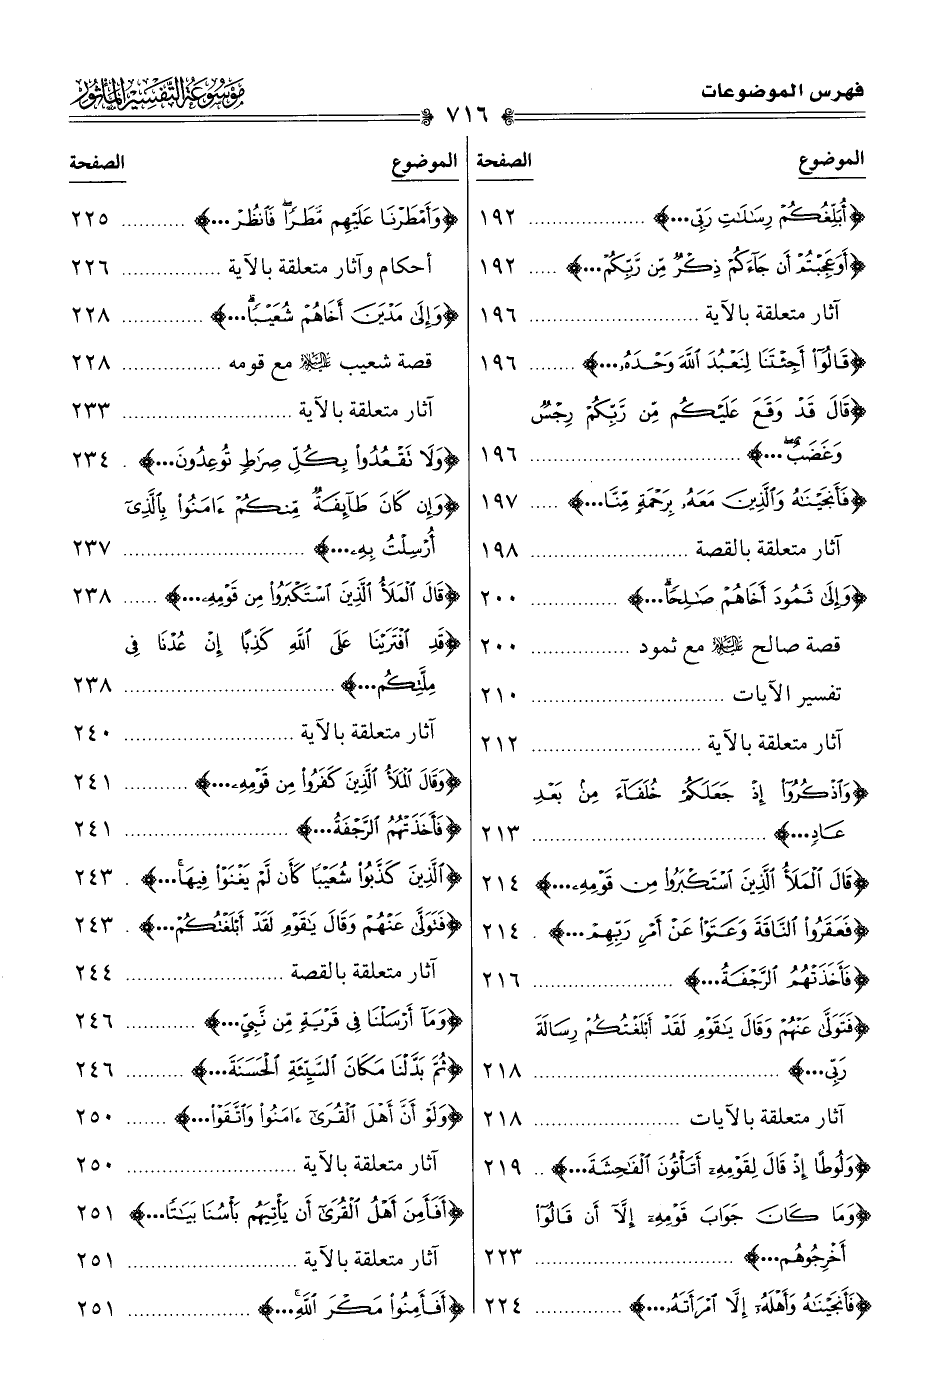 فهرس الموضوعات
موسوعة التفسير المأثور
٧١٦
الموضوع الصفحة
﴿أُبَلِّغُكُمْ رِسَالَاتِ رَبِّي...﴾ ١٩٢
﴿أَوَعَجِبْتُمْ أَن جَاءَكُمْ ذِكْرٌ مِّن رَّبِّكُمْ...﴾ ١٩٢
آثار متعلقة بالآية ١٩٦
﴿قَالُوٓا۟ أَجِئْتَنَا لِنَعْبُدَ ٱللَّهَ وَحْدَهُۥ...﴾ ١٩٦
﴿قَالَ قَدْ وَقَعَ عَلَيْكُم مِّن رَّبِّكُمْ رِجْسٌ
وَغَضَبٌ...﴾ ١٩٦
﴿فَأَنجَيْنَـٰهُ وَٱلَّذِينَ مَعَهُۥ بِرَحْمَةٍ مِّنَّا...﴾ ١٩٧
آثار متعلقة بالقصة ١٩٨
﴿وَإِلَىٰ ثَمُودَ أَخَاهُمْ صَـٰلِحًا...﴾ ٢٠٠
قصة صالح عليه السلام مع ثمود ٢٠٠
تفسير الآيات ٢١٠
آثار متعلقة بالآية ٢١٢
﴿وَٱذْكُرُوٓا۟ إِذْ جَعَلَكُمْ خُلَفَآءَ مِنۢ بَعْدِ
عَادٍ...﴾ ٢١٣
﴿قَالَ ٱلْمَلَأُ ٱلَّذِينَ ٱسْتَكْبَرُوا۟ مِن قَوْمِهِۦ...﴾ ٢١٤
﴿فَعَقَرُوا۟ ٱلنَّاقَةَ وَعَتَوْا۟ عَنْ أَمْرِ رَبِّهِمْ...﴾ ٢١٤
﴿فَأَخَذَتْهُمُ ٱلرَّجْفَةُ...﴾ ٢١٦
﴿فَتَوَلَّىٰ عَنْهُمْ وَقَالَ يَـٰقَوْمِ لَقَدْ أَبْلَغْتُكُمْ رِسَالَةَ
رَبِّي...﴾ ٢١٨
آثار متعلقة بالآيات ٢١٨
﴿وَلُوطًا إِذْ قَالَ لِقَوْمِهِۦٓ أَتَأْتُونَ ٱلْفَـٰحِشَةَ...﴾ ٢١٩
﴿وَمَا كَانَ جَوَابَ قَوْمِهِۦٓ إِلَّآ أَن قَالُوٓا۟
أَخْرِجُوهُم...﴾ ٢٢٣
﴿فَأَنجَيْنَـٰهُ وَأَهْلَهُۥٓ إِلَّا ٱمْرَأَتَهُۥ...﴾ ٢٢٤
الموضوع الصفحة
﴿وَأَمْطَرْنَا عَلَيْهِم مَّطَرًا فَٱنظُرْ...﴾ ٢٢٥
أحكام وآثار متعلقة بالآية ٢٢٦
﴿وَإِلَىٰ مَدْيَنَ أَخَاهُمْ شُعَيْبًا...﴾ ٢٢٨
قصة شعيب عليه السلام مع قومه ٢٢٨
آثار متعلقة بالآية ٢٣٣
﴿وَلَا تَقْعُدُوا۟ بِكُلِّ صِرَٰطٍ تُوعِدُونَ...﴾ ٢٣٤
﴿وَإِن كَانَ طَآئِفَةٌ مِّنكُمْ ءَامَنُوا۟ بِٱلَّذِىٓ
أُرْسِلْتُ بِهِۦ...﴾ ٢٣٧
﴿قَالَ ٱلْمَلَأُ ٱلَّذِينَ ٱسْتَكْبَرُوا۟ مِن قَوْمِهِۦ...﴾ ٢٣٨
﴿قَدِ ٱفْتَرَيْنَا عَلَى ٱللَّهِ كَذِبًا إِنْ عُدْنَا فِى
مِلَّتِكُم...﴾ ٢٣٨
آثار متعلقة بالآية ٢٤٠
﴿وَقَالَ ٱلْمَلَأُ ٱلَّذِينَ كَفَرُوا۟ مِن قَوْمِهِۦ...﴾ ٢٤١
﴿فَأَخَذَتْهُمُ ٱلرَّجْفَةُ...﴾ ٢٤١
﴿ٱلَّذِينَ كَذَّبُوا۟ شُعَيْبًا كَأَن لَّمْ يَغْنَوْا۟ فِيهَا...﴾ ٢٤٣
﴿فَتَوَلَّىٰ عَنْهُمْ وَقَالَ يَـٰقَوْمِ لَقَدْ أَبْلَغْتُكُمْ...﴾ ٢٤٣
آثار متعلقة بالقصة ٢٤٤
﴿وَمَآ أَرْسَلْنَا فِى قَرْيَةٍ مِّن نَّبِىٍّ...﴾ ٢٤٦
﴿ثُمَّ بَدَّلْنَا مَكَانَ ٱلسَّيِّئَةِ ٱلْحَسَنَةَ...﴾ ٢٤٦
﴿وَلَوْ أَنَّ أَهْلَ ٱلْقُرَىٰٓ ءَامَنُوا۟ وَٱتَّقَوْا۟...﴾ ٢٥٠
آثار متعلقة بالآية ٢٥٠
﴿أَفَأَمِنَ أَهْلُ ٱلْقُرَىٰٓ أَن يَأْتِيَهُم بَأْسُنَا بَيَـٰتًا...﴾ ٢٥١
آثار متعلقة بالآية ٢٥١
﴿أَفَأَمِنُوا۟ مَكْرَ ٱللَّهِ...﴾ ٢٥١